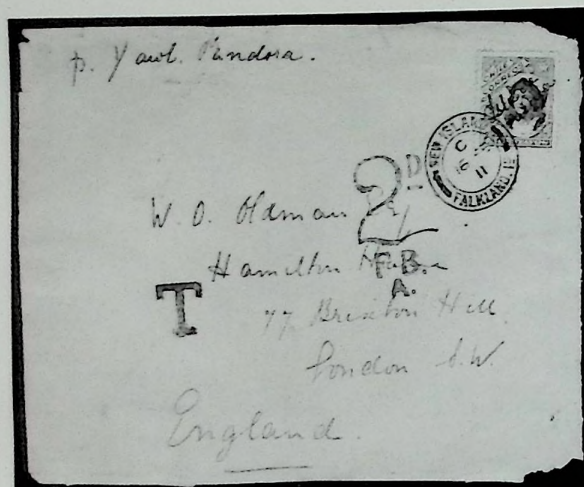 p. Yawl. Pandora.
NEW ISLAND
C
16
11
FALKLAND. IS
2D
W. O. Oldman
Hamilton
F.B.
A.
T
77 Brixton Hill.
London S.W.
England.